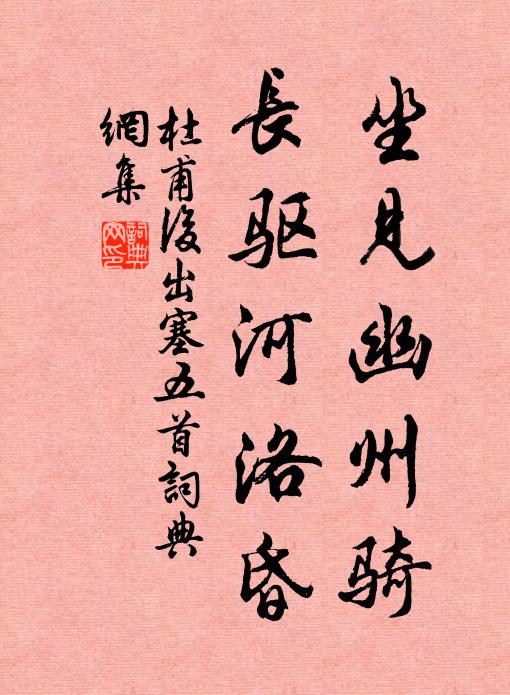 坐見幽州骑
長驱河洛昏
杜甫後出塞五首詞典
網集
詞典
网印